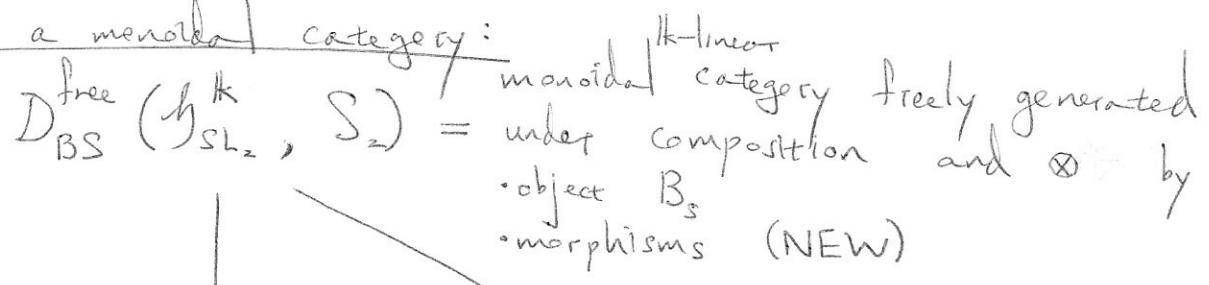 a menoidal category:
D_{BS}^{free} (𝔥_{SL_2}^{𝕜}, S_2) = monoidal 𝕜-linear category freely generated
under composition and ⊗ by
• object B_s
• morphisms (NEW)